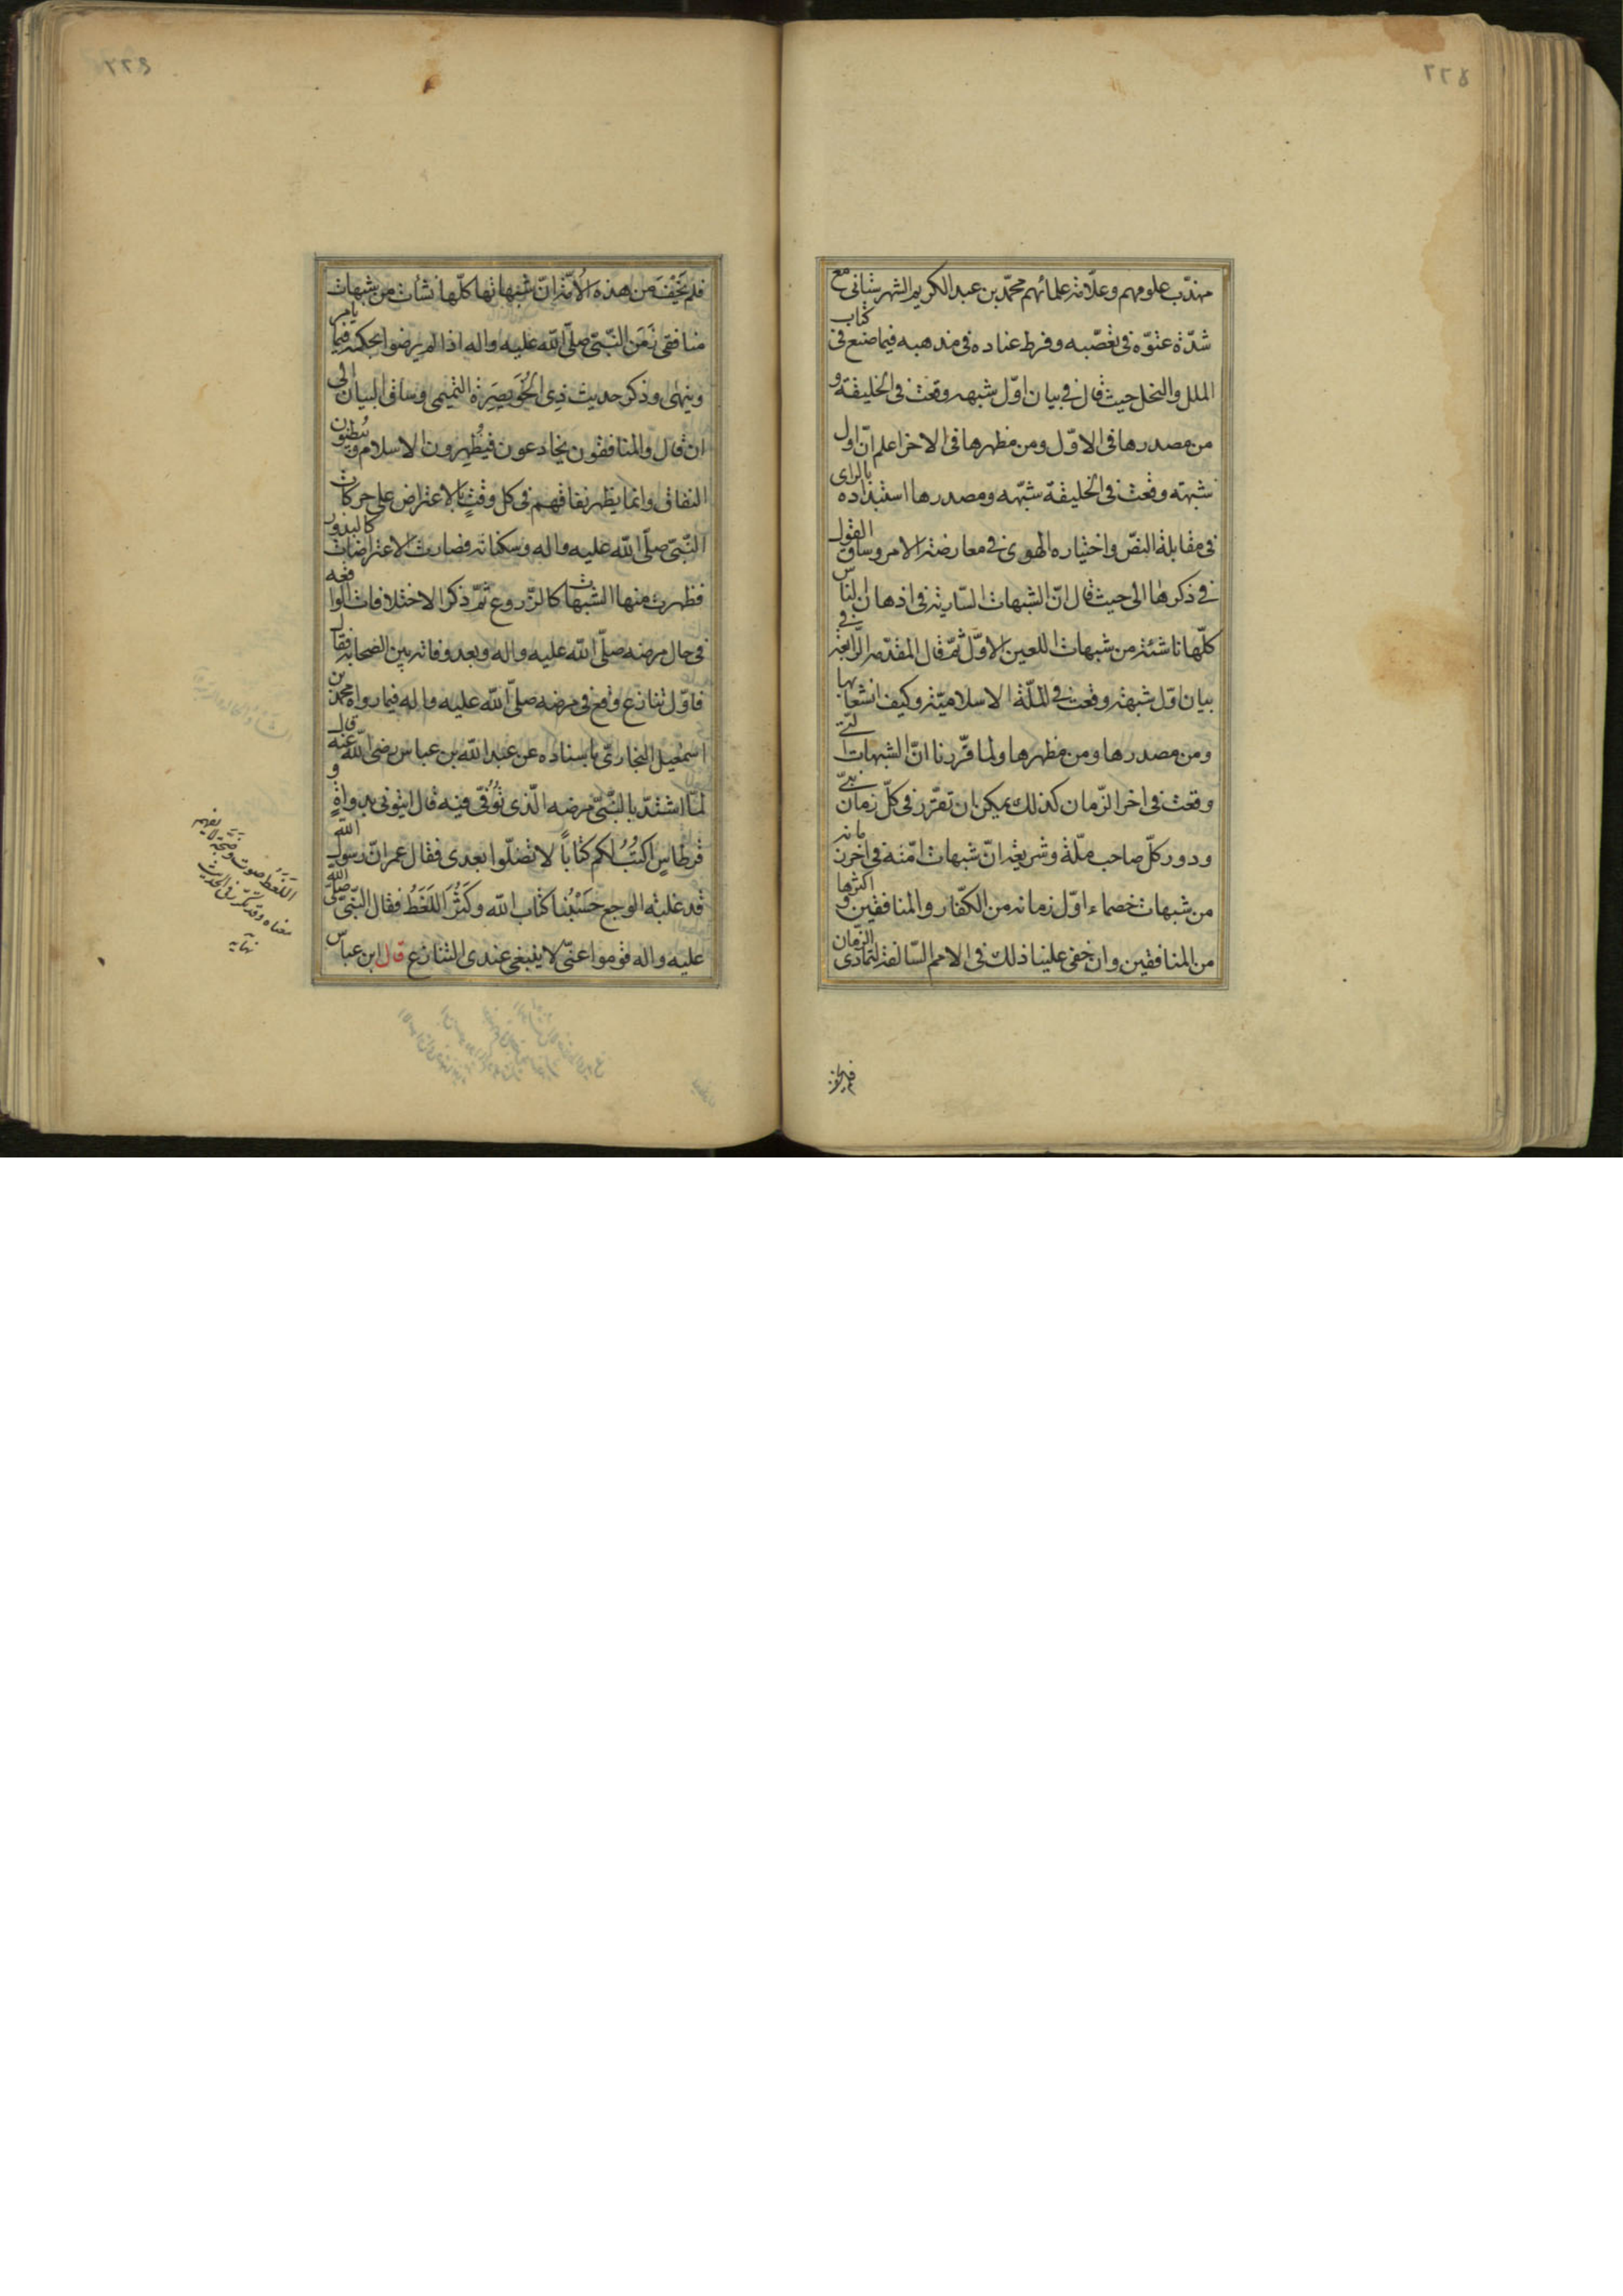 ٢٢٨
مهذّب علومهم وعلّامة علمائهم محمّد بن عبد الكريم الشهرستانى مع
شدّة عتوّه فى تعصّبه وفرط عناده فى مذهبه فيما صنع فى كتاب
الملل والنحل حيث قال فى بيان اوّل شبهه وقعت فى الخليفة و
من مصدرها فى الاوّل ومن مظهرها فى الاخر اعلم انّ اول
شبهته وقعت فى الخليفة شبهه ومصدرها استبداده بالراى
فى مقابلة النصّ واختياره الهوى فى معارضة الامر وساق القول
فى ذكرها الى حيث قال انّ الشبهات السّارية فى اذهان الناس
كلّها ناشئة من شبهات اللعين الاوّل ثمّ قال المقدّمه الرّابعة فى
بيان اوّل شبهة وقعت فى الملّة الاسلاميّة وكيف انشعابها
ومن مصدرها ومن مظهرها ولما قرّرنا انّ الشبهات الّتى
وقعت فى اخر الزّمان كذلك يمكن ان تقرّر فى كلّ زمان نبىّ
ودور كلّ صاحب ملّة وشريعة انّ شبهات امّته فى اخر زمانه
من شبهات خصماء اوّل زمانه من الكفّار والمنافقين واكثرها
من المنافقين وان خفى علينا ذلك فى الامم السّالفة لتمادى الزّمان
فلم يخف
٢٢٩
فلم يَخْفَ من هذه الاُمّة انّ شبهاتها كلّها نشأت من شبهات
منافقى زَمَن النّبىّ صلّى الله عليه واله اذا لم يرضوا بحكمه فيما يامر
وينهى وذكر حديث ذِى الخُوَيصِرَة التّميمى وساق البيان الى
ان قال والمنافقون يخادعون فيُظْهِرون الاسلام ويُبْطِنون
النفاق وانما يظهر نفاقهم فى كل وقتٍ بالاعتراض على حركات
النّبىّ صلّى الله عليه واله وسكناته فصارت الاعتراضات كالبذور
فظهرت منها الشبهات كالزّروع ثمّ ذكر الاختلافات الواقعه
فى حال مرضه صلّى الله عليه واله وبعد وفاته بين الصحابه فقال
فاوّل تنازع وقع فى مرضه صلّى الله عليه واله فيما رواه محمّد بن
اسمعيل البخارىّ باسناده عن عبد الله بن عباس رضى الله عنه قال
لمّا اشتدّ بالنّبىّ مرضه الّذى تُوُفّى فيه قال ايتونى بدواةٍ و
قرطاسٍ اكتُبْ لكم كتاباً لا تضلّوا بعدى فقال عمر انّ رسول الله
قد غلبه الوجع حَسْبُنا كتاب الله وكَثُرَ اللَغَطُ فقال النّبىّ صلى الله
عليه واله قوموا عنّى لا ينبغى عندى التّنازع قال ابن عباس
اللَغَطُ صوت وضجّة لا يفهم
معناه وقد تكرّر فى الحديث
نهايه